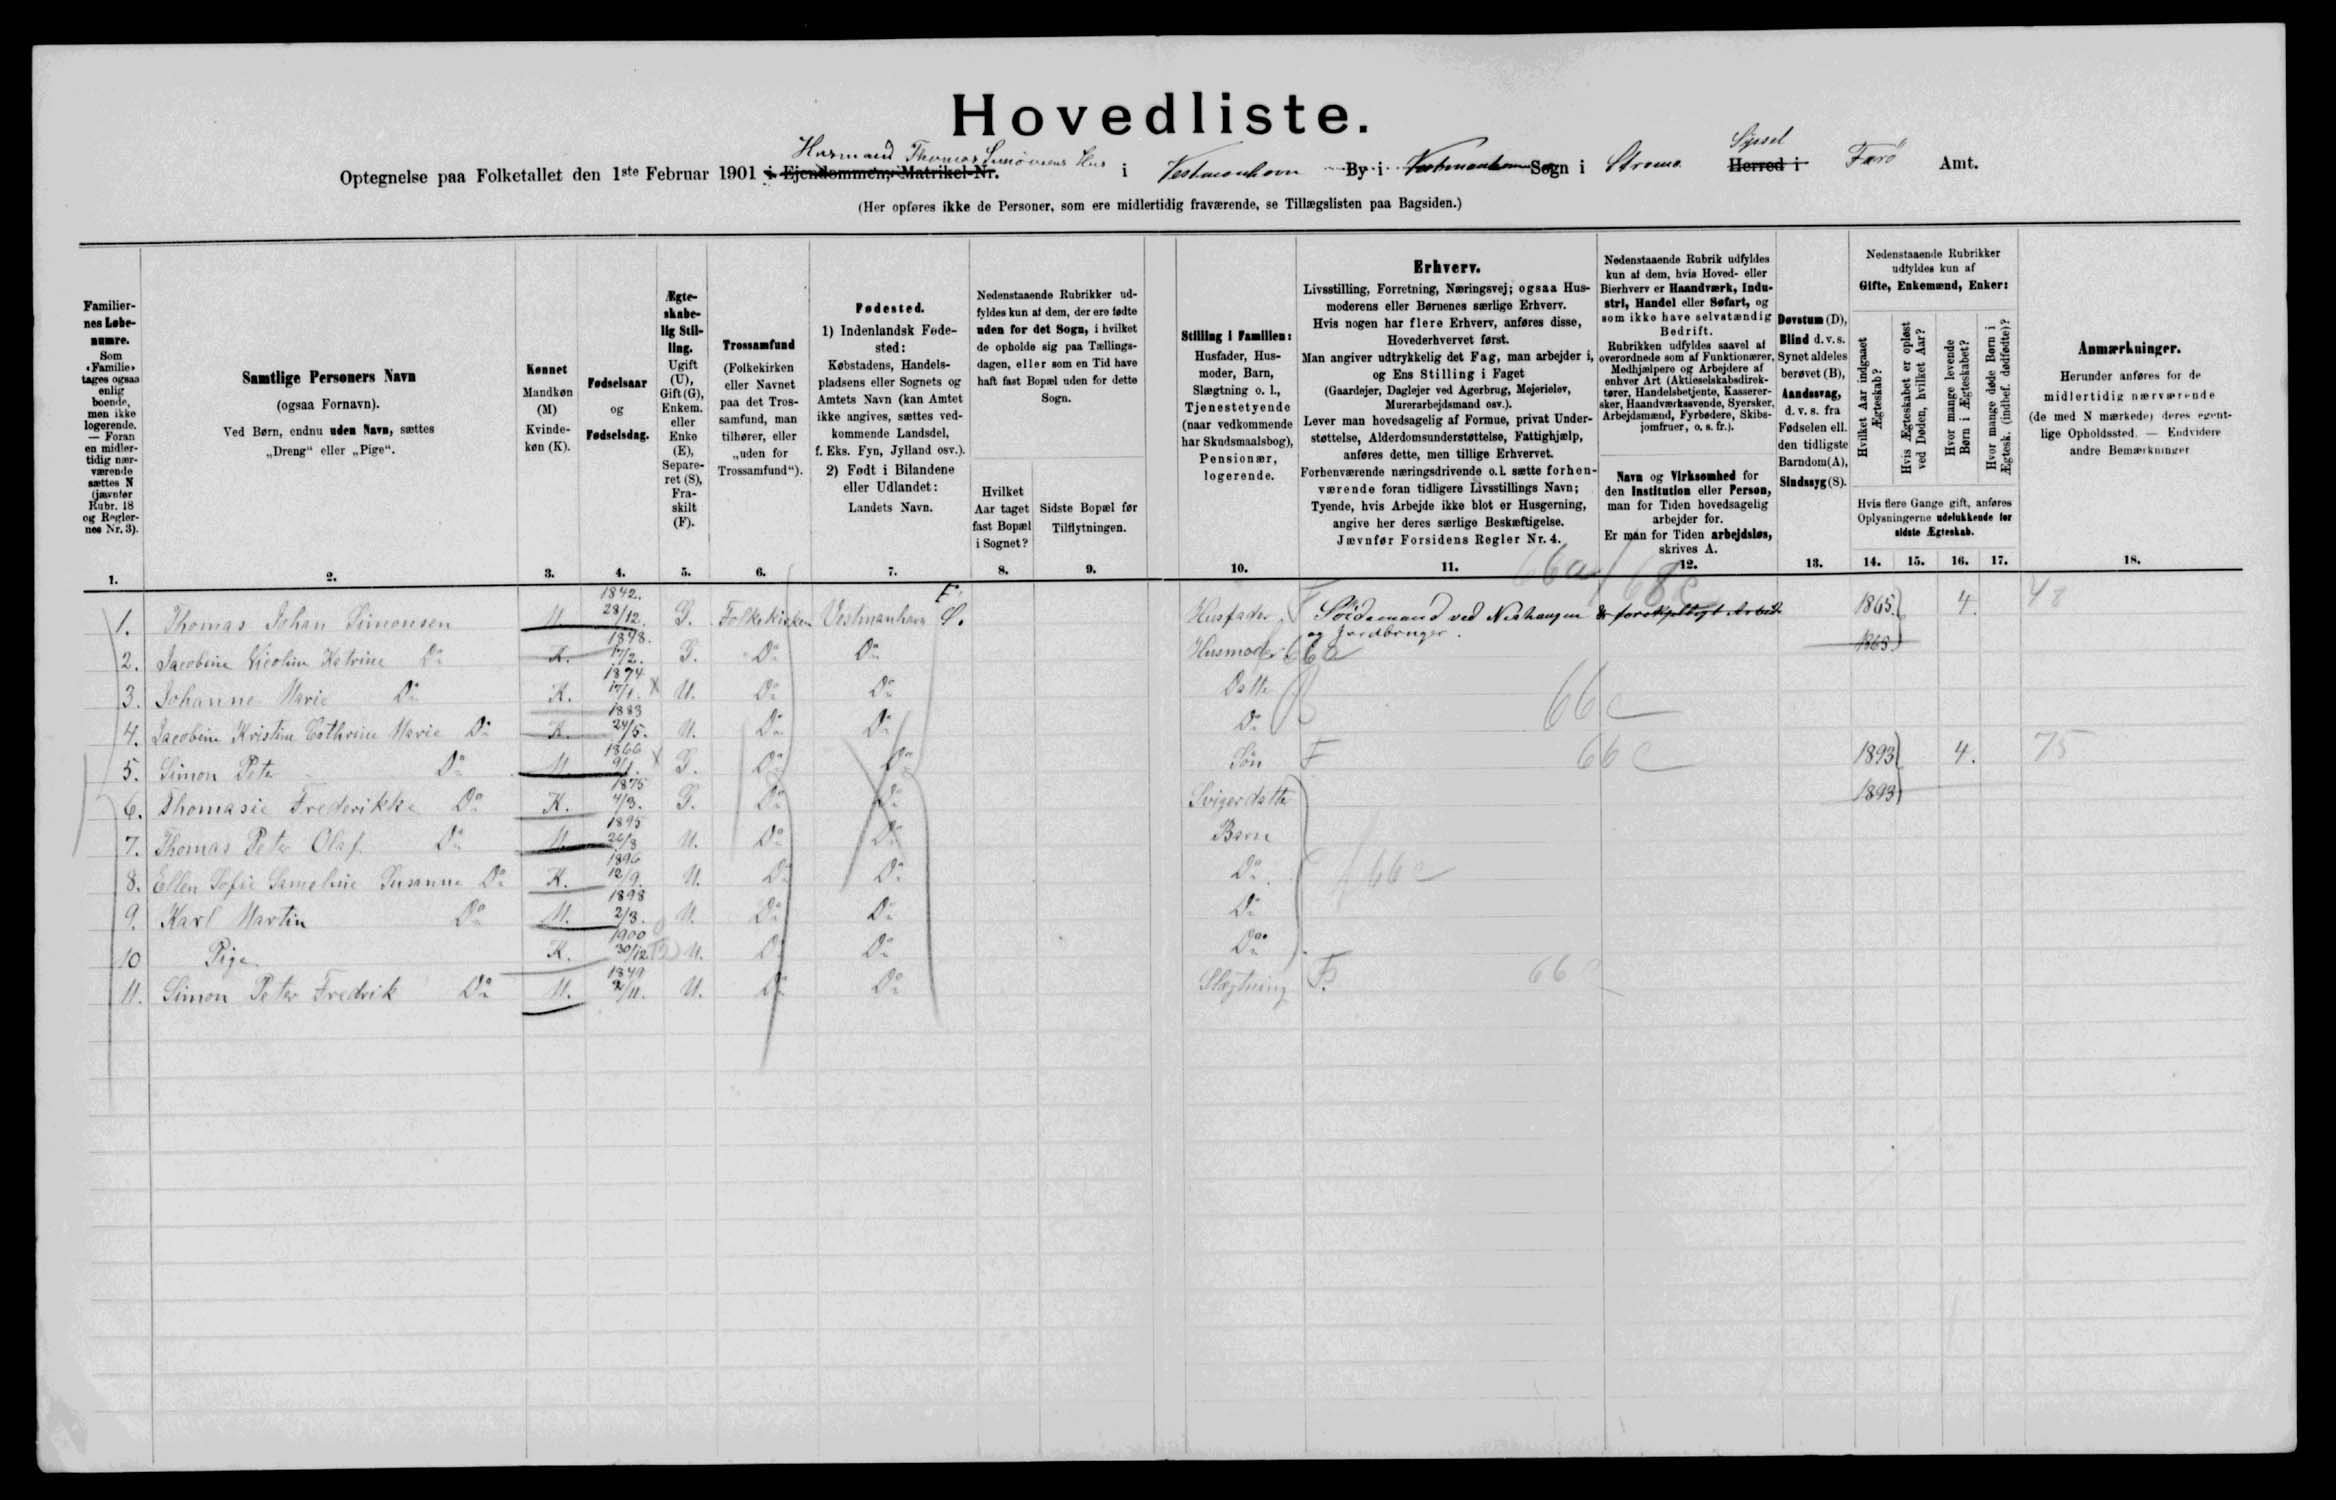 Hovedliste.
Husmand Thomas Simonsens Hus Sysel
Optegnelse paa Folketallet den 1ste Februar 1901 i Ejendommen, Matrikel-Nr. i Vestmanhavn By i Vestmanhavn Sogn i Strømø Herred i Færø Amt.
(Her opføres ikke de Personer, som ere midlertidig fraværende, se Tillægslisten paa Bagsiden.)
Familier-
nes Løbe-
numre.
Som
«Familie»
tages ogsaa
enlig
boende,
men ikke
logerende.
— Foran
en midler-
tidig nær-
værende
sættes N
(jævnfør
Rubr. 18
og Regler-
nes Nr. 3).
1.
Samtlige Personers Navn
(ogsaa Fornavn).
Ved Børn, endnu uden Navn, sættes
„Dreng“ eller „Pige“.
2.
Kønnet
Mandkøn
(M)
Kvinde-
køn (K).
3.
Fødselsaar
og
Fødselsdag.
4.
Ægte-
skabe-
lig Stil-
ling.
Ugift
(U),
Gift (G),
Enkem.
eller
Enke
(E),
Separe-
ret (S),
Fra-
skilt
(F).
5.
Trossamfund
(Folkekirken
eller Navnet
paa det Tros-
samfund, man
tilhører, eller
„uden for
Trossamfund“).
6.
Fødested.
1) Indenlandsk Føde-
sted:
Købstadens, Handels-
pladsens eller Sognets og
Amtets Navn (kan Amtet
ikke angives, sættes ved-
kommende Landsdel,
f. Eks. Fyn, Jylland osv.).
2) Født i Bilandene
eller Udlandet:
Landets Navn.
7.
Nedenstaaende Rubrikker ud-
fyldes kun af dem, der ere fødte
uden for det Sogn, i hvilket
de opholde sig paa Tællings-
dagen, eller som en Tid have
haft fast Bopæl uden for dette
Sogn.
Hvilket
Aar taget
fast Bopæl
i Sognet?
8.
Sidste Bopæl før
Tilflytningen.
9.
Stilling i Familien:
Husfader, Hus-
moder, Barn,
Slægtning o. l.,
Tjenestetyende
(naar vedkommende
har Skudsmaalsbog),
Pensionær,
logerende.
10.
Erhverv.
Livsstilling, Forretning, Næringsvej; ogsaa Hus-
moderens eller Børnenes særlige Erhverv.
Hvis nogen har flere Erhverv, anføres disse,
Hovederhvervet først.
Man angiver udtrykkelig det Fag, man arbejder i,
og Ens Stilling i Faget
(Gaardejer, Daglejer ved Agerbrug, Mejerielev,
Murerarbejdsmand osv.).
Lever man hovedsagelig af Formue, privat Under-
støttelse, Alderdomsunderstøttelse, Fattighjælp,
anføres dette, men tillige Erhvervet.
Forhenværende næringsdrivende o. l. sætte forhen-
værende foran tidligere Livsstillings Navn;
Tyende, hvis Arbejde ikke blot er Husgerning,
angive her deres særlige Beskæftigelse.
Jævnfør Forsidens Regler Nr. 4.
11.
Nedenstaaende Rubrik udfyldes
kun af dem, hvis Hoved- eller
Bierhverv er Haandværk, Indu-
stri, Handel eller Søfart, og
som ikke have selvstændig
Bedrift.
Rubrikken udfyldes saavel af
overordnede som af Funktionærer,
Medhjælpere og Arbejdere af
enhver Art (Aktieselskabsdirek-
tører, Handelsbetjente, Kasserer-
sker, Haandværkssvende, Syersker,
Arbejdsmænd, Fyrbødere, Skibs-
jomfruer, o. s. fr.).
Navn og Virksomhed for
den Institution eller Person,
man for Tiden hovedsagelig
arbejder for.
Er man for Tiden arbejdsløs,
skrives A.
12.
Døvstum (D),
Blind d. v. s.
Synet aldeles
berøvet (B),
Aandssvag,
d. v. s. fra
Fødselen ell.
den tidligste
Barndom (A),
Sindssyg (S).
13.
Nedenstaaende Rubrikker
udfyldes kun af
Gifte, Enkemænd, Enker:
Hvilket Aar indgaaet
Ægteskab?
Hvis Ægteskabet er opløst
ved Døden, hvilket Aar?
Hvor mange levende
Børn i Ægteskabet?
Hvor mange døde Børn i
Ægtesk. (indbef. dødfødte)?
Hvis flere Gange gift, anføres
Oplysningerne udelukkende for
sidste Ægteskab.
14. 15. 16. 17.
Anmærkninger.
Herunder anføres for de
midlertidig nærværende
(de med N mærkede) deres egent-
lige Opholdssted. — Endvidere
andre Bemærkninger
18.
66a 68c
1. Thomas Johan Simonsen M. 1842. 28/12. G. Folkekirken Vestmanhavn S. F. Husfader F 1865. 4. 48
og Jordbruger.
2. Jacobine Nicoline Katrine Do K. 17/2. G. Do Do Husmoder 66a
3. Johanne Marie Do K. 1874 17/1. U. Do Do Datter
4. Jacobine Kristine Cathrine Marie Do K. 1883 24/5. U. Do Do Do 66c
5. Simon Peter Do M. 1866 9/1. G. Do Do Søn F 66c 1893 4. 75
6. Thomasie Frederikke Do K. 1875 4/3. G. Do Do Svigerdatter 1893
7. Thomas Peter Olaf Do M. 1895 26/3 U. Do Do Barn
8. Ellen Sofie Sameline Susanne Do K. 1896 12/9. U. Do Do Do 66c
9. Karl Martin Do M. 1898 2/3. U. Do Do Do
10 Pige. K. 1900 30/12 U. Do Do Do
11. Simon Peter Fredrik Do M. 1849 2/11. U. Do Do Slægtning F. 66